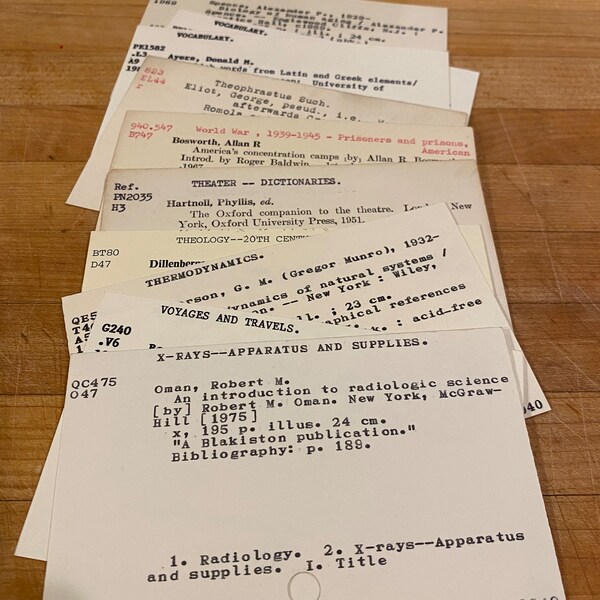 Spencer, Alexander P., 1929-
Biology of human
VOCABULARY.
VOCABULARY.
PE1582
.L3
A9
Ayers, Donald M.
words from Latin and Greek elements/
University of
823
EL44
r
Theophrastus Such.
Eliot, George, pseud., i.e.
afterwards
Romola
940.547
B747
World War , 1939-1945 - Prisoners and prisons,
American
Bosworth, Allan R
America's concentration camps by Allan R.
Introd. by Roger Baldwin.
1967
Ref.
PN2035
H3
THEATER -- DICTIONARIES.
Hartnoll, Phyllis, ed.
The Oxford companion to the theatre. New
York, Oxford University Press, 1951.
BT80
D47
THEOLOGY--20TH
THERMODYNAMICS.
G. M. (Gregor Munro), 1932-
of natural systems /
-- New York : Wiley,
; 23 cm.
references
: acid-free
G240
.V6
VOYAGES AND TRAVELS.
X-RAYS--APPARATUS AND SUPPLIES.
QC475
O47
Oman, Robert M.
An introduction to radiologic science
[by] Robert M. Oman. New York, McGraw-
Hill [1975]
x, 195 p. illus. 24 cm.
"A Blakiston publication."
Bibliography: p. 189.
1. Radiology. 2. X-rays--Apparatus
and supplies. I. Title